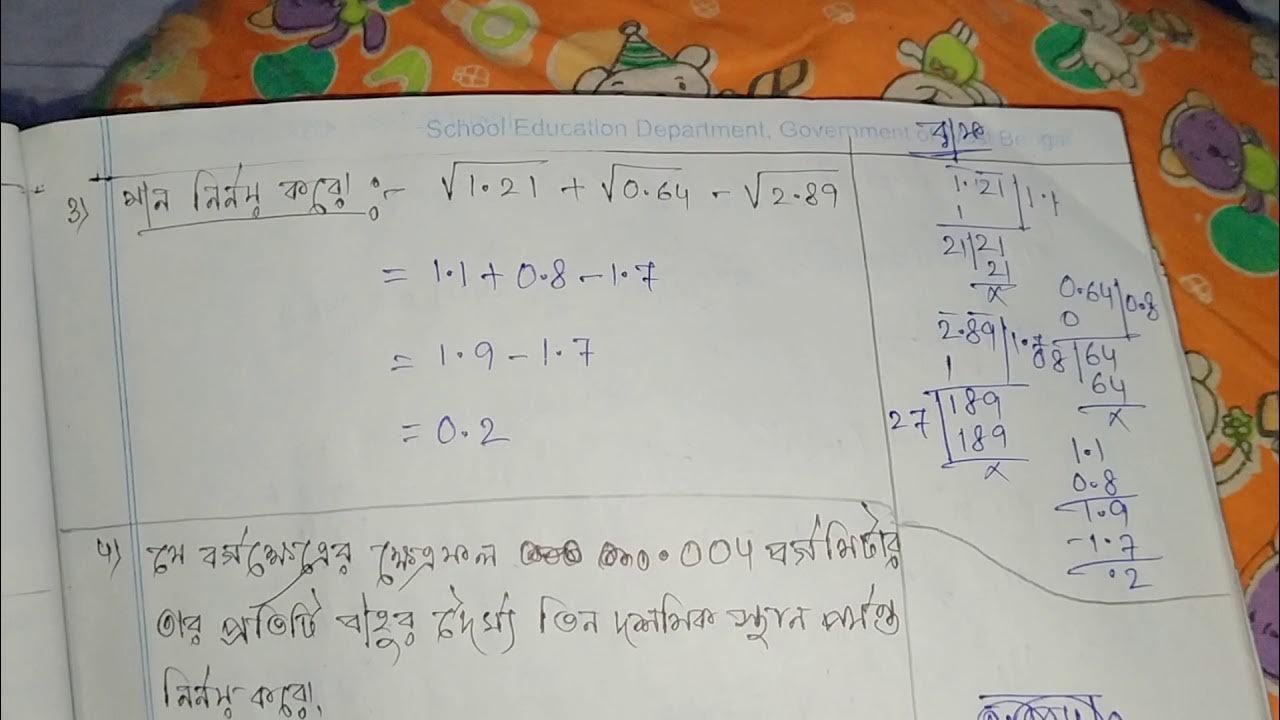 School Education Department, Government of
3) মান নির্নয় করো :- √1.21 + √0.64 - √2.89
= 1.1 + 0.8 - 1.7
= 1.9 - 1.7
= 0.2
1.21 | 1.1
1
21 | 21
21
x
0.64 | 0.8
0
08 | 64
64
x
2.89 | 1.7
1
27 | 189
189
x
1.1
0.8
1.9
-1.7
.2
4) যে বর্গক্ষেত্রের ক্ষেত্রফল .004 বর্গমিটার
তার প্রতিটি বাহুর দৈর্ঘ্য তিন দশমিক স্থান পর্যন্ত
নির্নয় করো।